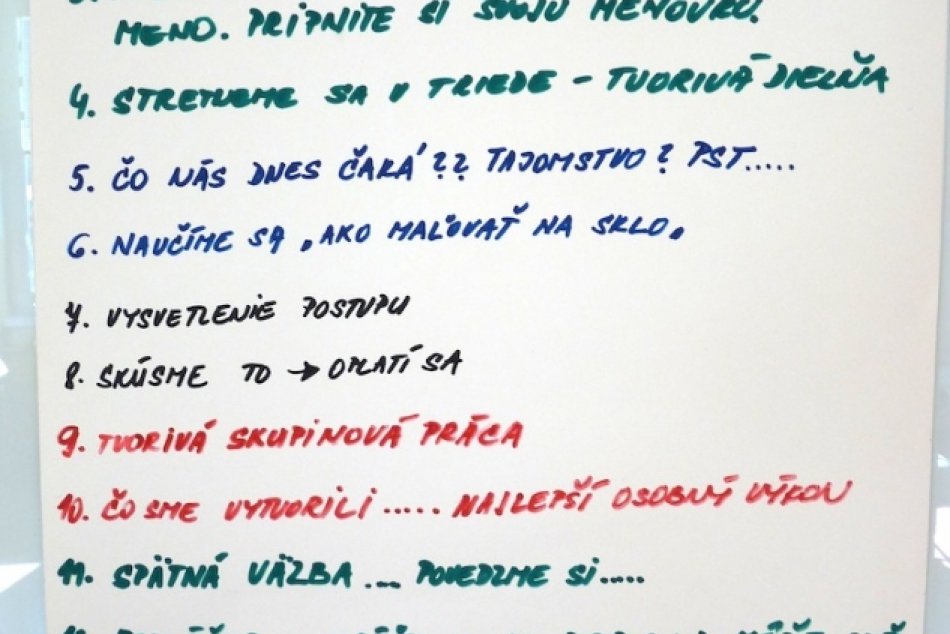 MENO. PRIPNITE SI SVOJU MENOVKU.
4. STRETNEME SA V TRIEDE - TVORIVÁ DIELŇA
5. ČO NÁS DNES ČAKÁ?? TAJOMSTVO? PST.....
6. NAUČÍME SA „AKO MAĽOVAŤ NA SKLO„
7. VYSVETLENIE POSTUPU
8. SKÚSME TO → OPLATÍ SA
9. TVORIVÁ SKUPINOVÁ PRÁCA
10. ČO SME VYTVORILI ..... NAJLEPŠÍ OSOBNÝ VÝKON
11. SPÄTNÁ VÄZBA ... POVEDZME SI.....